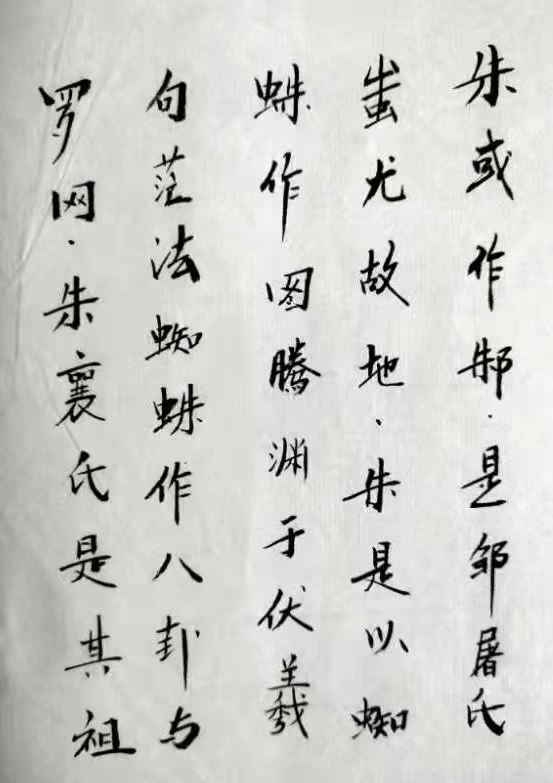 朱或作邾·是邹屠氏
蚩尤故地·朱是以蜘
蛛作图腾渊于伏羲
句芒法蜘蛛作八卦与
罗网·朱襄氏是其祖